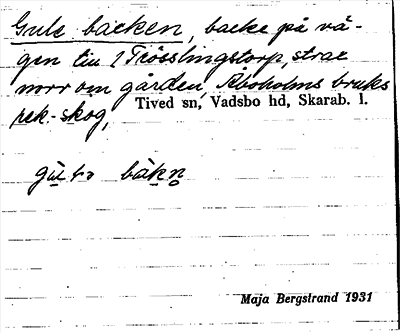 Gule backen, backe på vä-
gen till 1 Trösslingstorp, strax
norr om gården, Åboholms bruks
rek-skog,
Tived sn, Vadsbo hd, Skarab. l.
Maja Bergstrand 1931